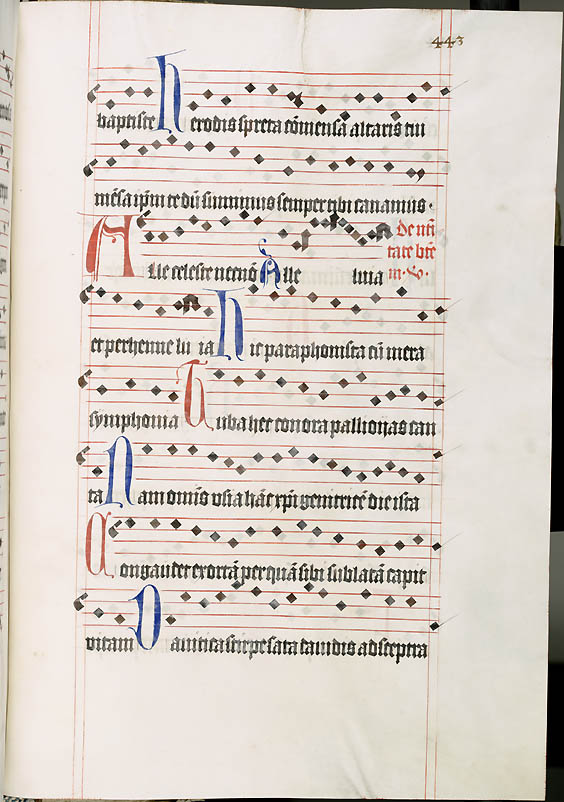 443
baptiste Herodis spreta cōmensā altaris tui
mēsa ip̄m te dū sumimus semper tibi canamus.
Alle celeste necnō Alle luia
De nati
tate bt̄e
m. v̄.
et perhenne lu ia Hic paraphonista cū mera
symphonia Tuba hec conora pallionias can
ta Nam omnis usia hāc xp̄i genitricē die ista
Congaudet exortā per quā sibi sublatā capit
vitam Dauitica stirpe sata dauidis ad sceptra